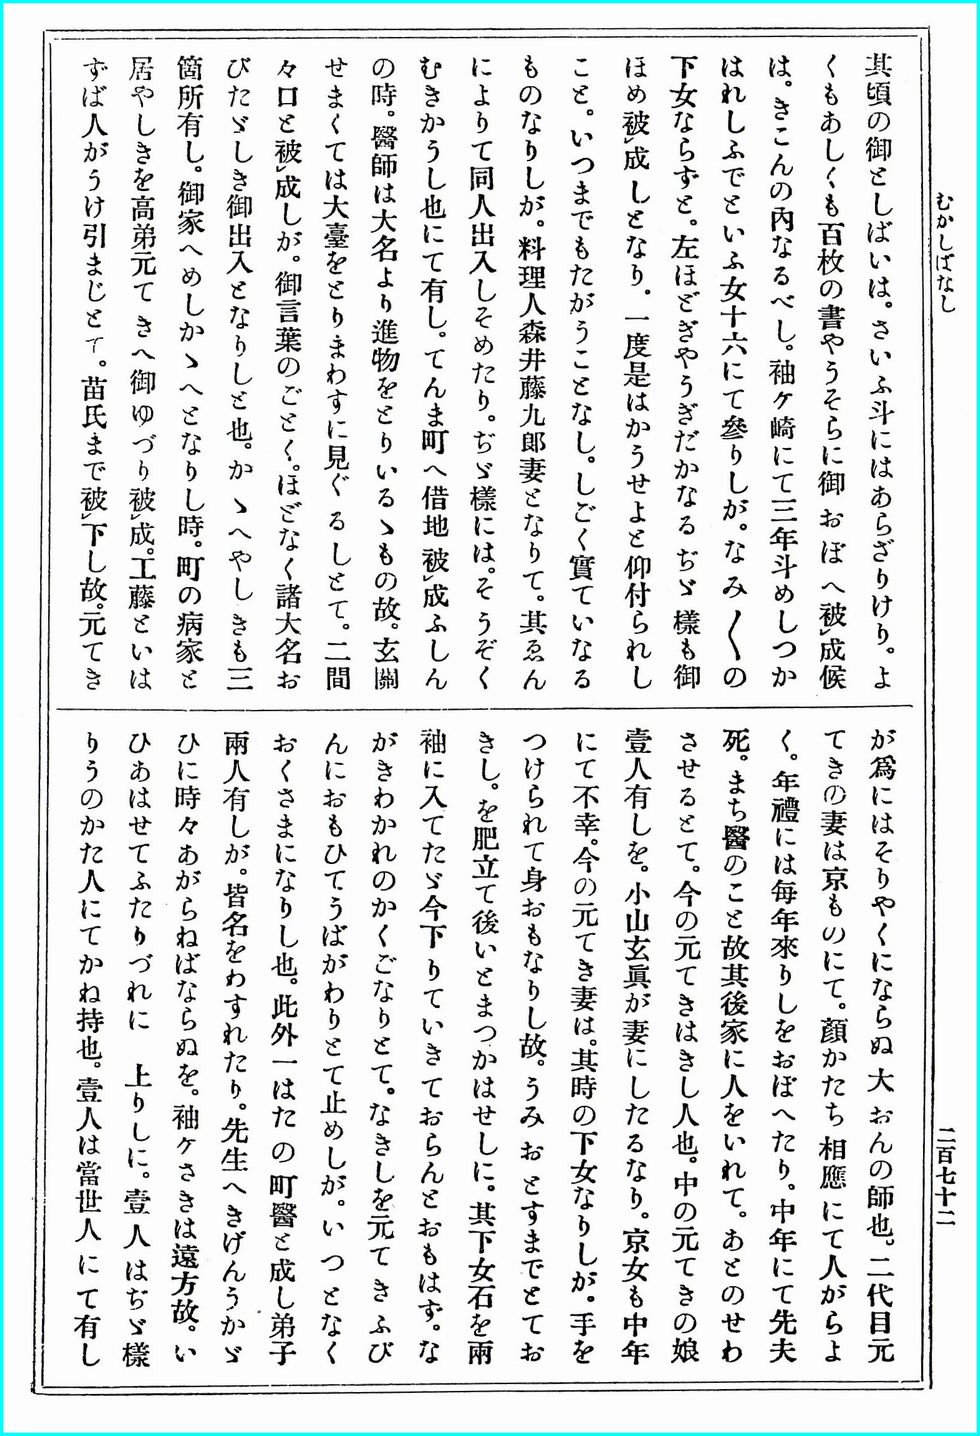 むかしばなし
二百七十二
其頃の御としばいは。さいふ斗にはあらざりけり。よ
くもあしくも百枚の書やうそらに御おぼへ被成候
は。きこんの內なるべし。袖ケ崎にて三年斗めしつか
はれしふでといふ女十六にて參りしが。なみ〱の
下女ならずと。左ほどぎやうぎだかなるぢゞ樣も御
ほめ被成しとなり。一度是はかうせよと仰付られし
こと。いつまでもたがうことなし。しごく實ていなる
ものなりしが。料理人森井藤九郞妻となりて。其ゑん
によりて同人出入しそめたり。ぢゞ樣には。そうぞく
むきかうし也にて有し。てんま町へ借地被成ふしん
の時。醫師は大名より進物をとりいるゝもの故。玄關
せまくては大臺をとりまわすに見ぐるしとて。二間
々口と被成しが。御言葉のごとく。ほどなく諸大名お
びたゞしき御出入となりしと也。かゝへやしきも三
箇所有し。御家へめしかゝへとなりし時。町の病家と
居やしきを高弟元てきへ御ゆづり被成。工藤といは
ずば人がうけ引まじとて。苗氏まで被下し故。元てき
が爲にはそりやくにならぬ大おんの師也。二代目元
てきの妻は京ものにて。顏かたち相應にて人がらよ
く。年禮には每年來りしをおぼへたり。中年にて先夫
死。まち醫のこと故其後家に人をいれて。あとのせわ
させるとて。今の元てきはきし人也。中の元てきの娘
壹人有しを。小山玄眞が妻にしたるなり。京女も中年
にて不幸。今の元てき妻は。其時の下女なりしが。手を
つけられて身おもなりし故。うみおとすまでとてお
きし。を肥立て後いとまつかはせしに。其下女石を兩
袖に入てたゞ今下りていきておらんとおもはず。な
がきわかれのかくごなりとて。なきしを元てきふび
んにおもひてうばがわりとて止めしが。いつとなく
おくさまになりし也。此外一はたの町醫と成し弟子
兩人有しが。皆名をわすれたり。先生へきげんうかゞ
ひに時々あがらねばならぬを。袖ケさきは遠方故。い
ひあはせてふたりづれに　上りしに。壹人はぢゞ樣
りうのかた人にてかね持也。壹人は當世人にて有し